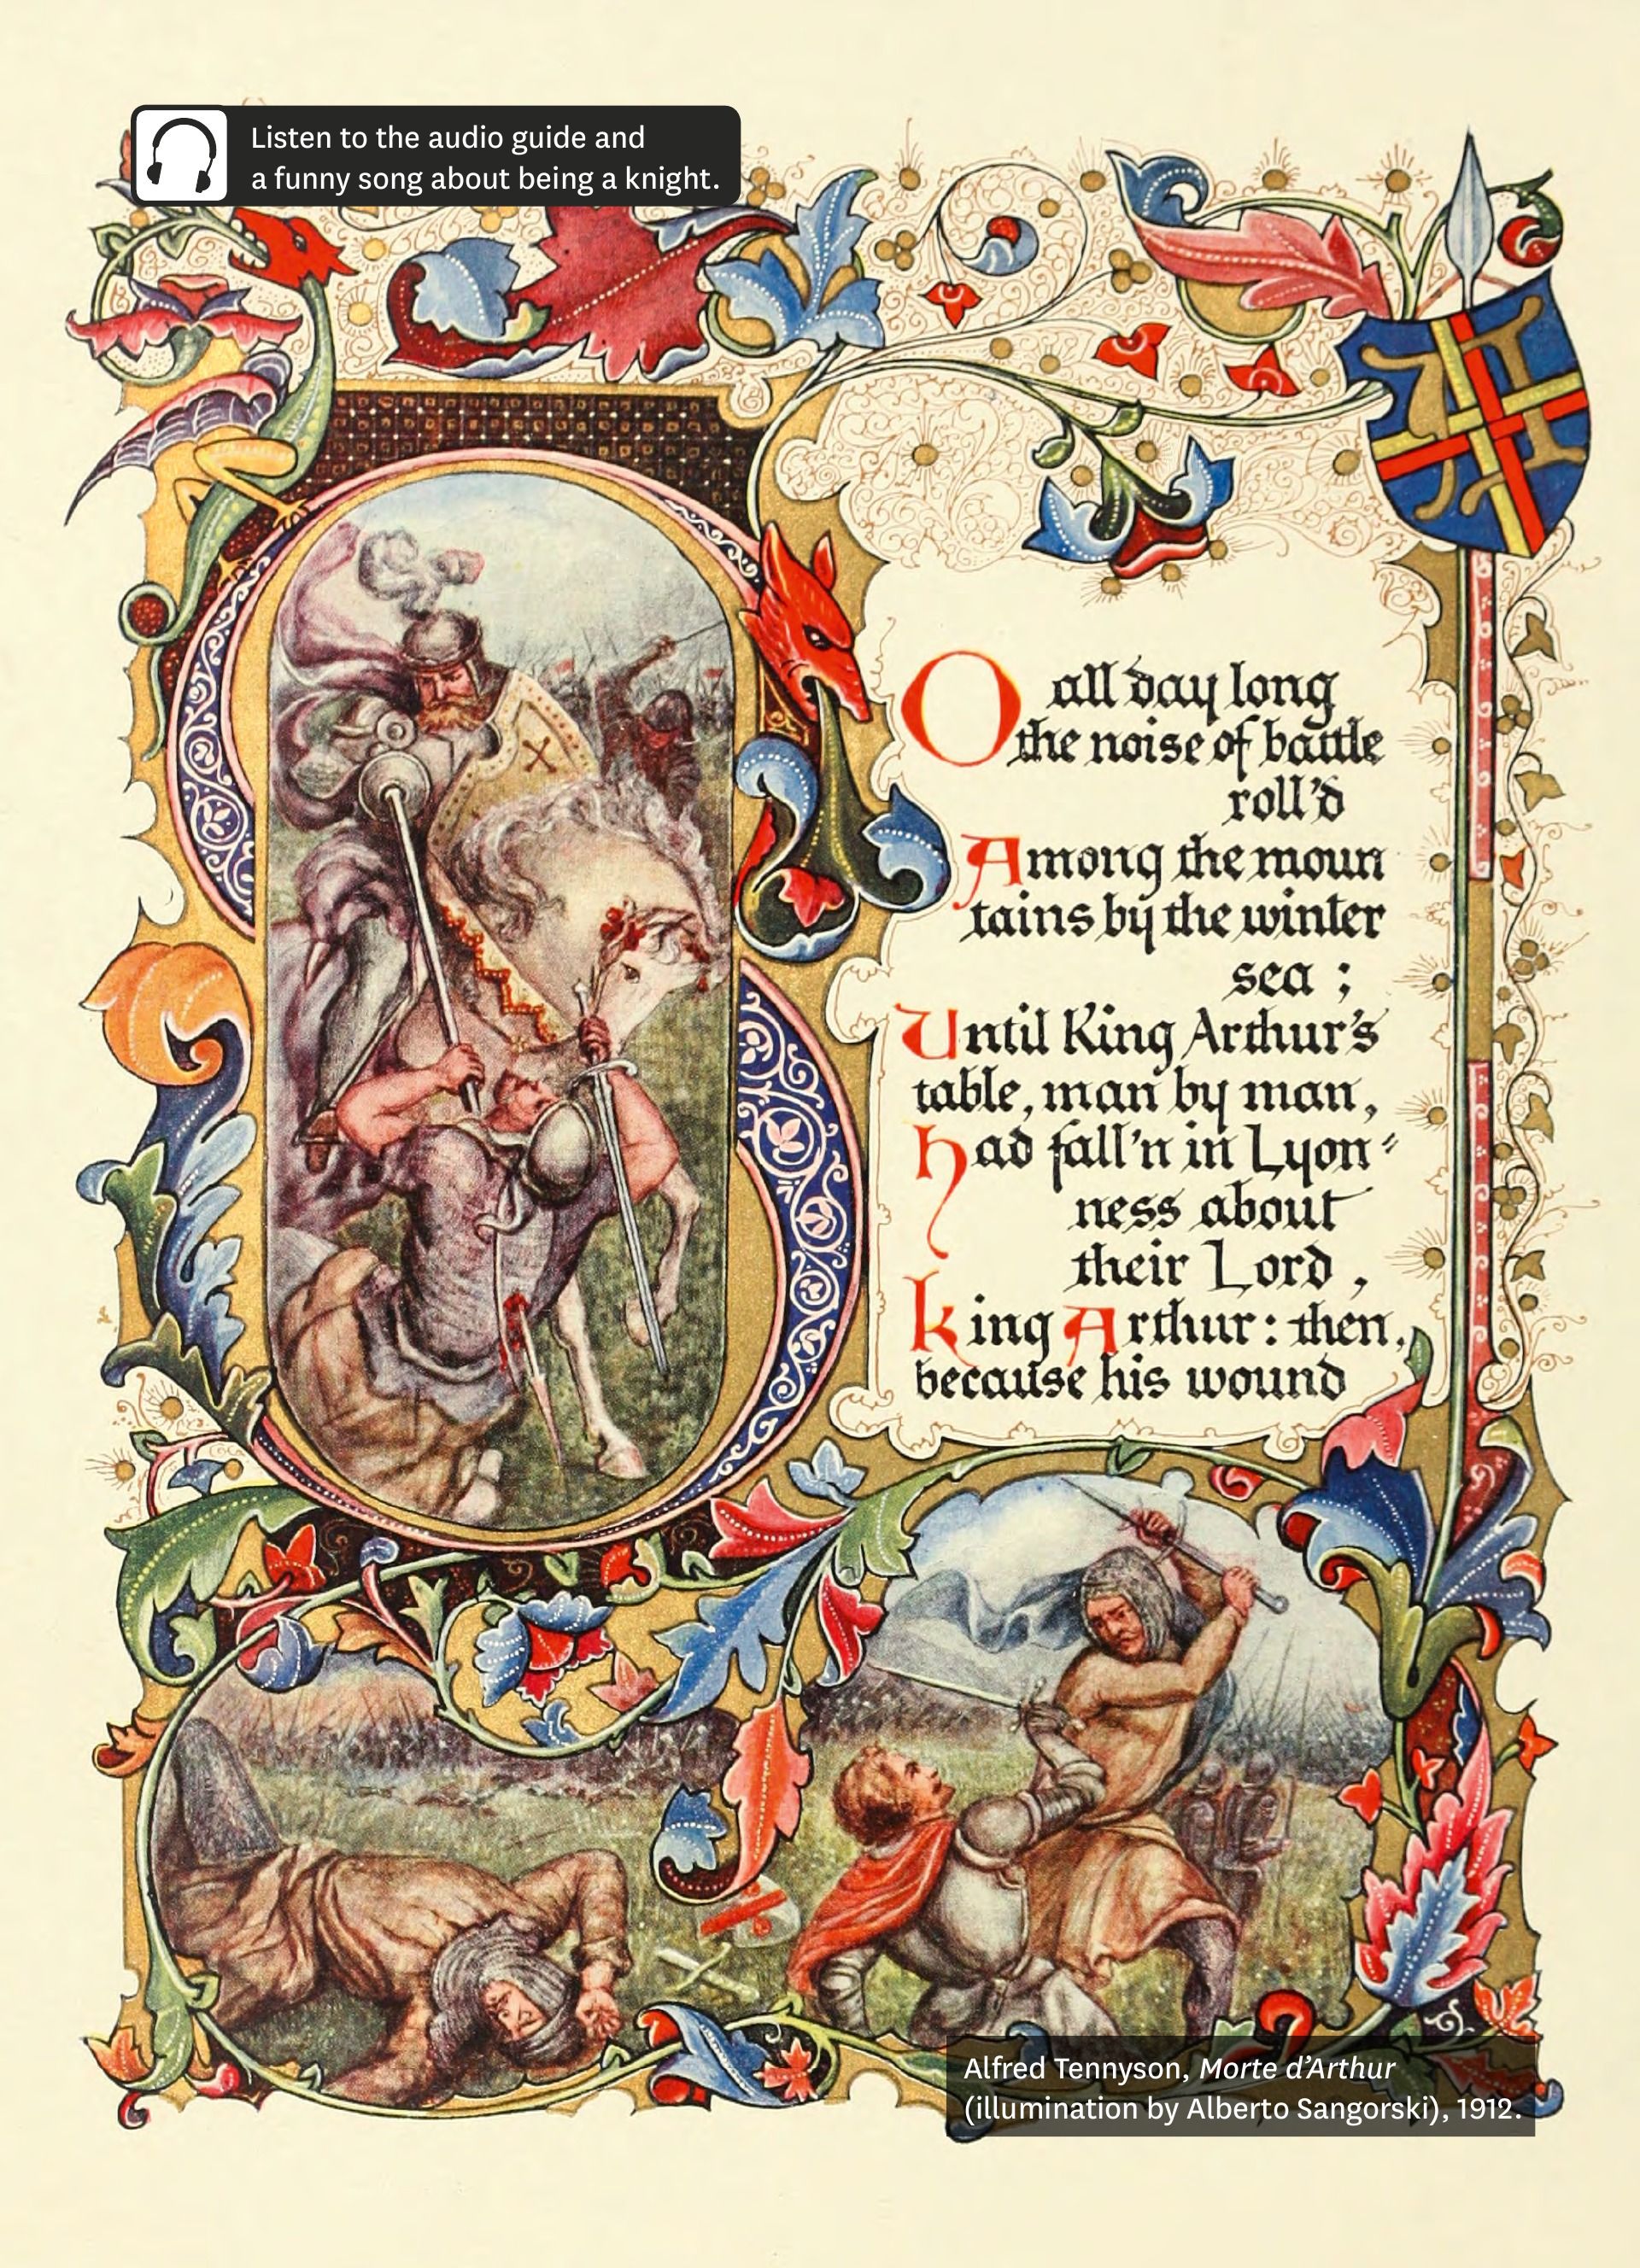 Listen to the audio guide and
a funny song about being a knight.
O all day long
the noise of battle
roll'd
Among the moun
tains by the winter
sea ;
Until King Arthur's
table, man by man,
had fall'n in Lyon-
ness about
their Lord ,
king Arthur : then,
because his wound
Alfred Tennyson, Morte d’Arthur
(illumination by Alberto Sangorski), 1912.